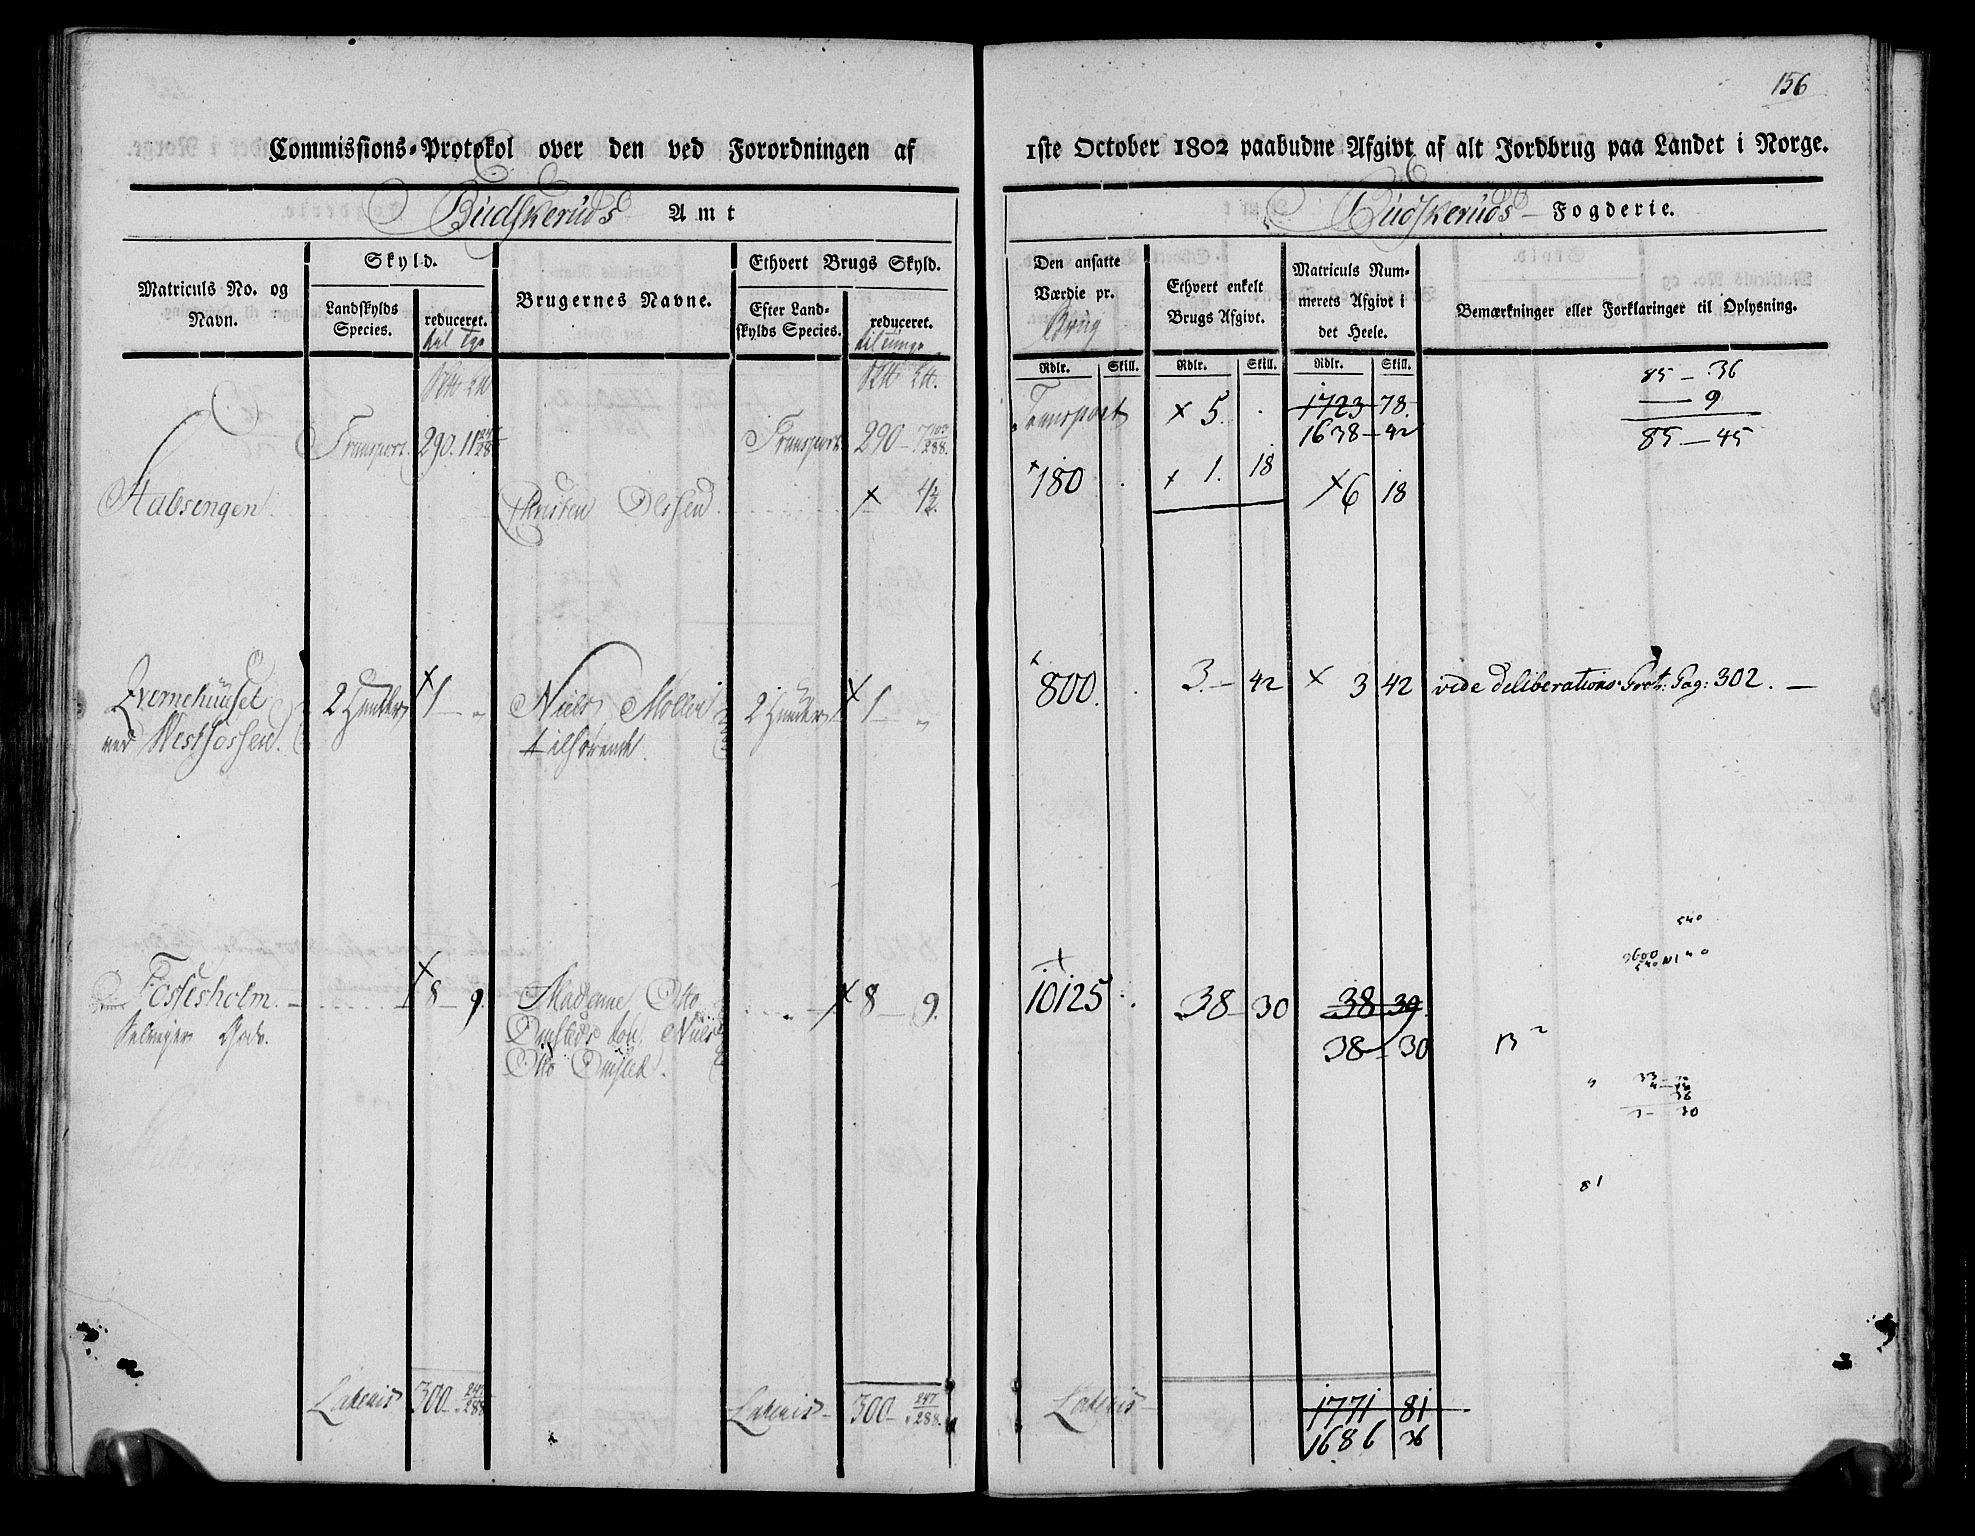 156
Commissions-Protokol over den ved Forordningen af 1ste October 1802 paabudne Afgivt af alt Jordbrug paa Landet i Norge.
Budskeruds Amt
Budskeruds Fogderie.
Matriculs No. og Navn.
Skyld.
Landskylds Species.
reduceret.
Brugernes Navne.
Ethvert Brugs Skyld.
Efter Landskylds Species.
reduceret.
Den ansatte Værdie pr. Brug
Ethvert enkelt Brugs Afgivt.
Matriculs Nummerets Afgivt i det Heele.
Bemærkninger eller Forklaringer til Oplysning.
Rdlr. Skill. Rdlr. Skill. Rdlr. Skill.
Transport 290. 11 247/288 Transport 290 Transport × 5. 1723 78.
1638 - 42
85 - 36
9
85 - 45
Stabsengen Christen Olssen × 4½. 180 × 1. 18 × 6 18
Qvernehuuset 2 Hunder × 1 Niels Moller 2 Hunder × 1 800. 3. - 42 × 3 42 vide deliberations Prot: Pag: 302.
ved Westfossen tilhørende
Fossesholm × 8 - 9. Madame Otto × 8 - 9. 10125 38 - 30 38 - 30
Omsteds Niels 38 - 30
Otto Omsted.
540
13
81
Lateris 300 247/288 Lateris 300 247/288. Lateris 1771 81
1686 36